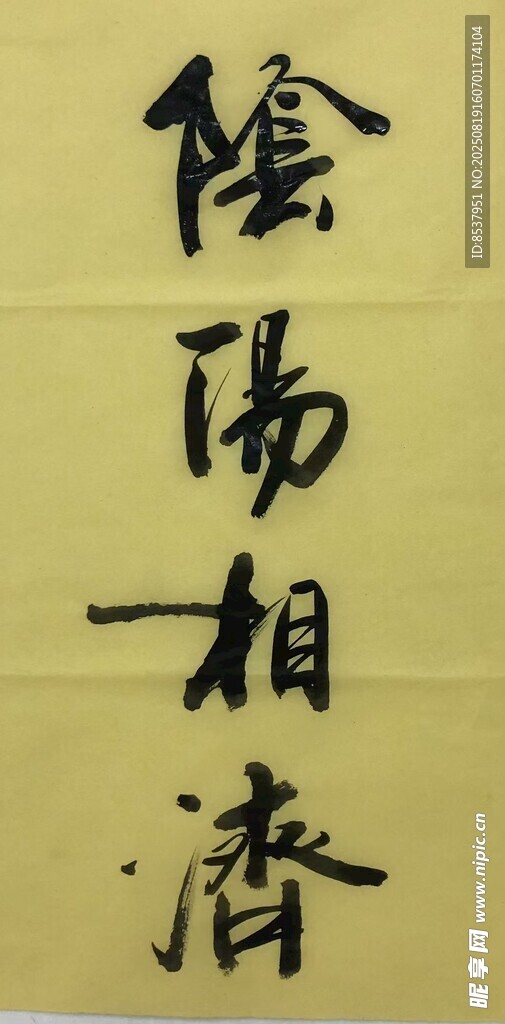 陰陽相濟
ID:8537951 NO:20250819160701174104
昵享网 www.nipic.cn